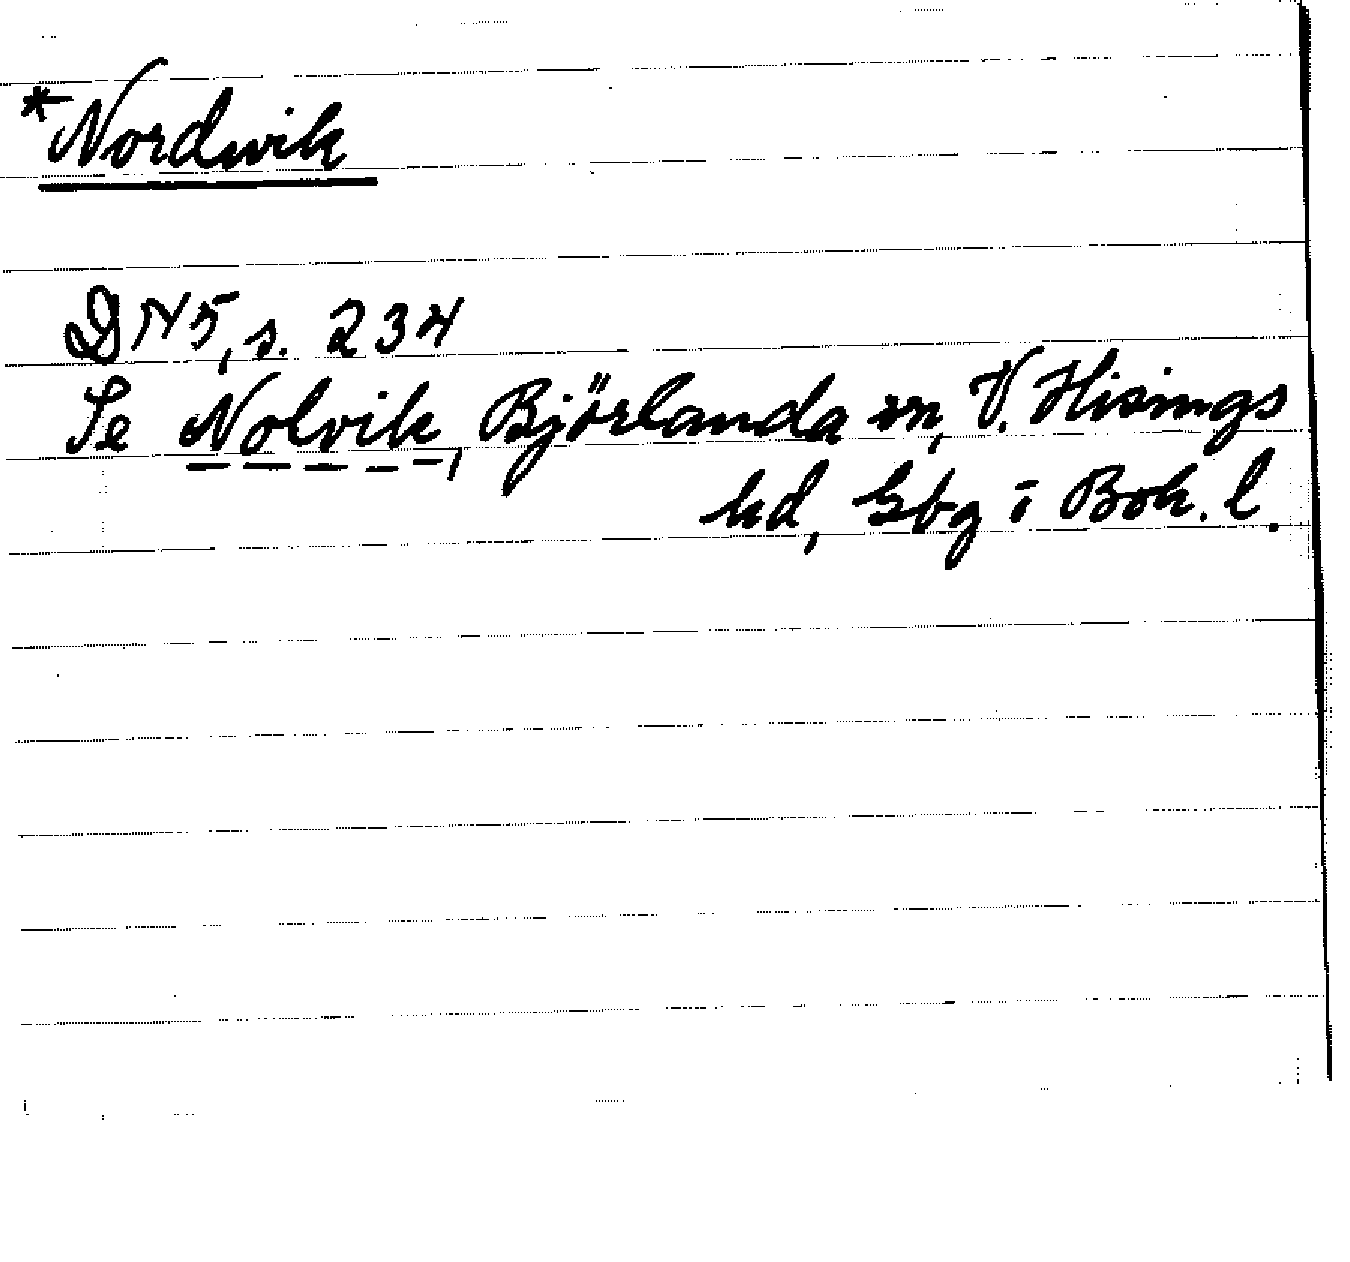 *Nordwik
DN 5, s. 234
Se Nolvik, Björlanda sn, V. Hisings
hd, Gbg i Boh. l.